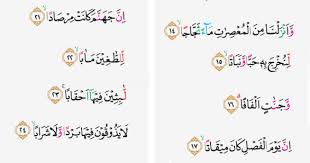 وَّاَنْزَلْنَا مِنَ الْمُعْصِرٰتِ مَاۤءً ثَجَّاجًاۙ ١٤
لِّنُخْرِجَ بِهٖ حَبًّا وَّنَبَاتًاۙ ١٥
وَّجَنّٰتٍ اَلْفَافًاۗ ١٦
اِنَّ يَوْمَ الْفَصْلِ كَانَ مِيْقَاتًاۙ ١٧
اِنَّ جَهَنَّمَ كَانَتْ مِرْصَادًاۙ ٢١
لِّلطّٰغِيْنَ مَاٰبًاۙ ٢٢
لّٰبِثِيْنَ فِيْهَآ اَحْقَابًاۚ ٢٣
لَا يَذُوْقُوْنَ فِيْهَا بَرْدًا وَّلَا شَرَابًاۙ ٢٤